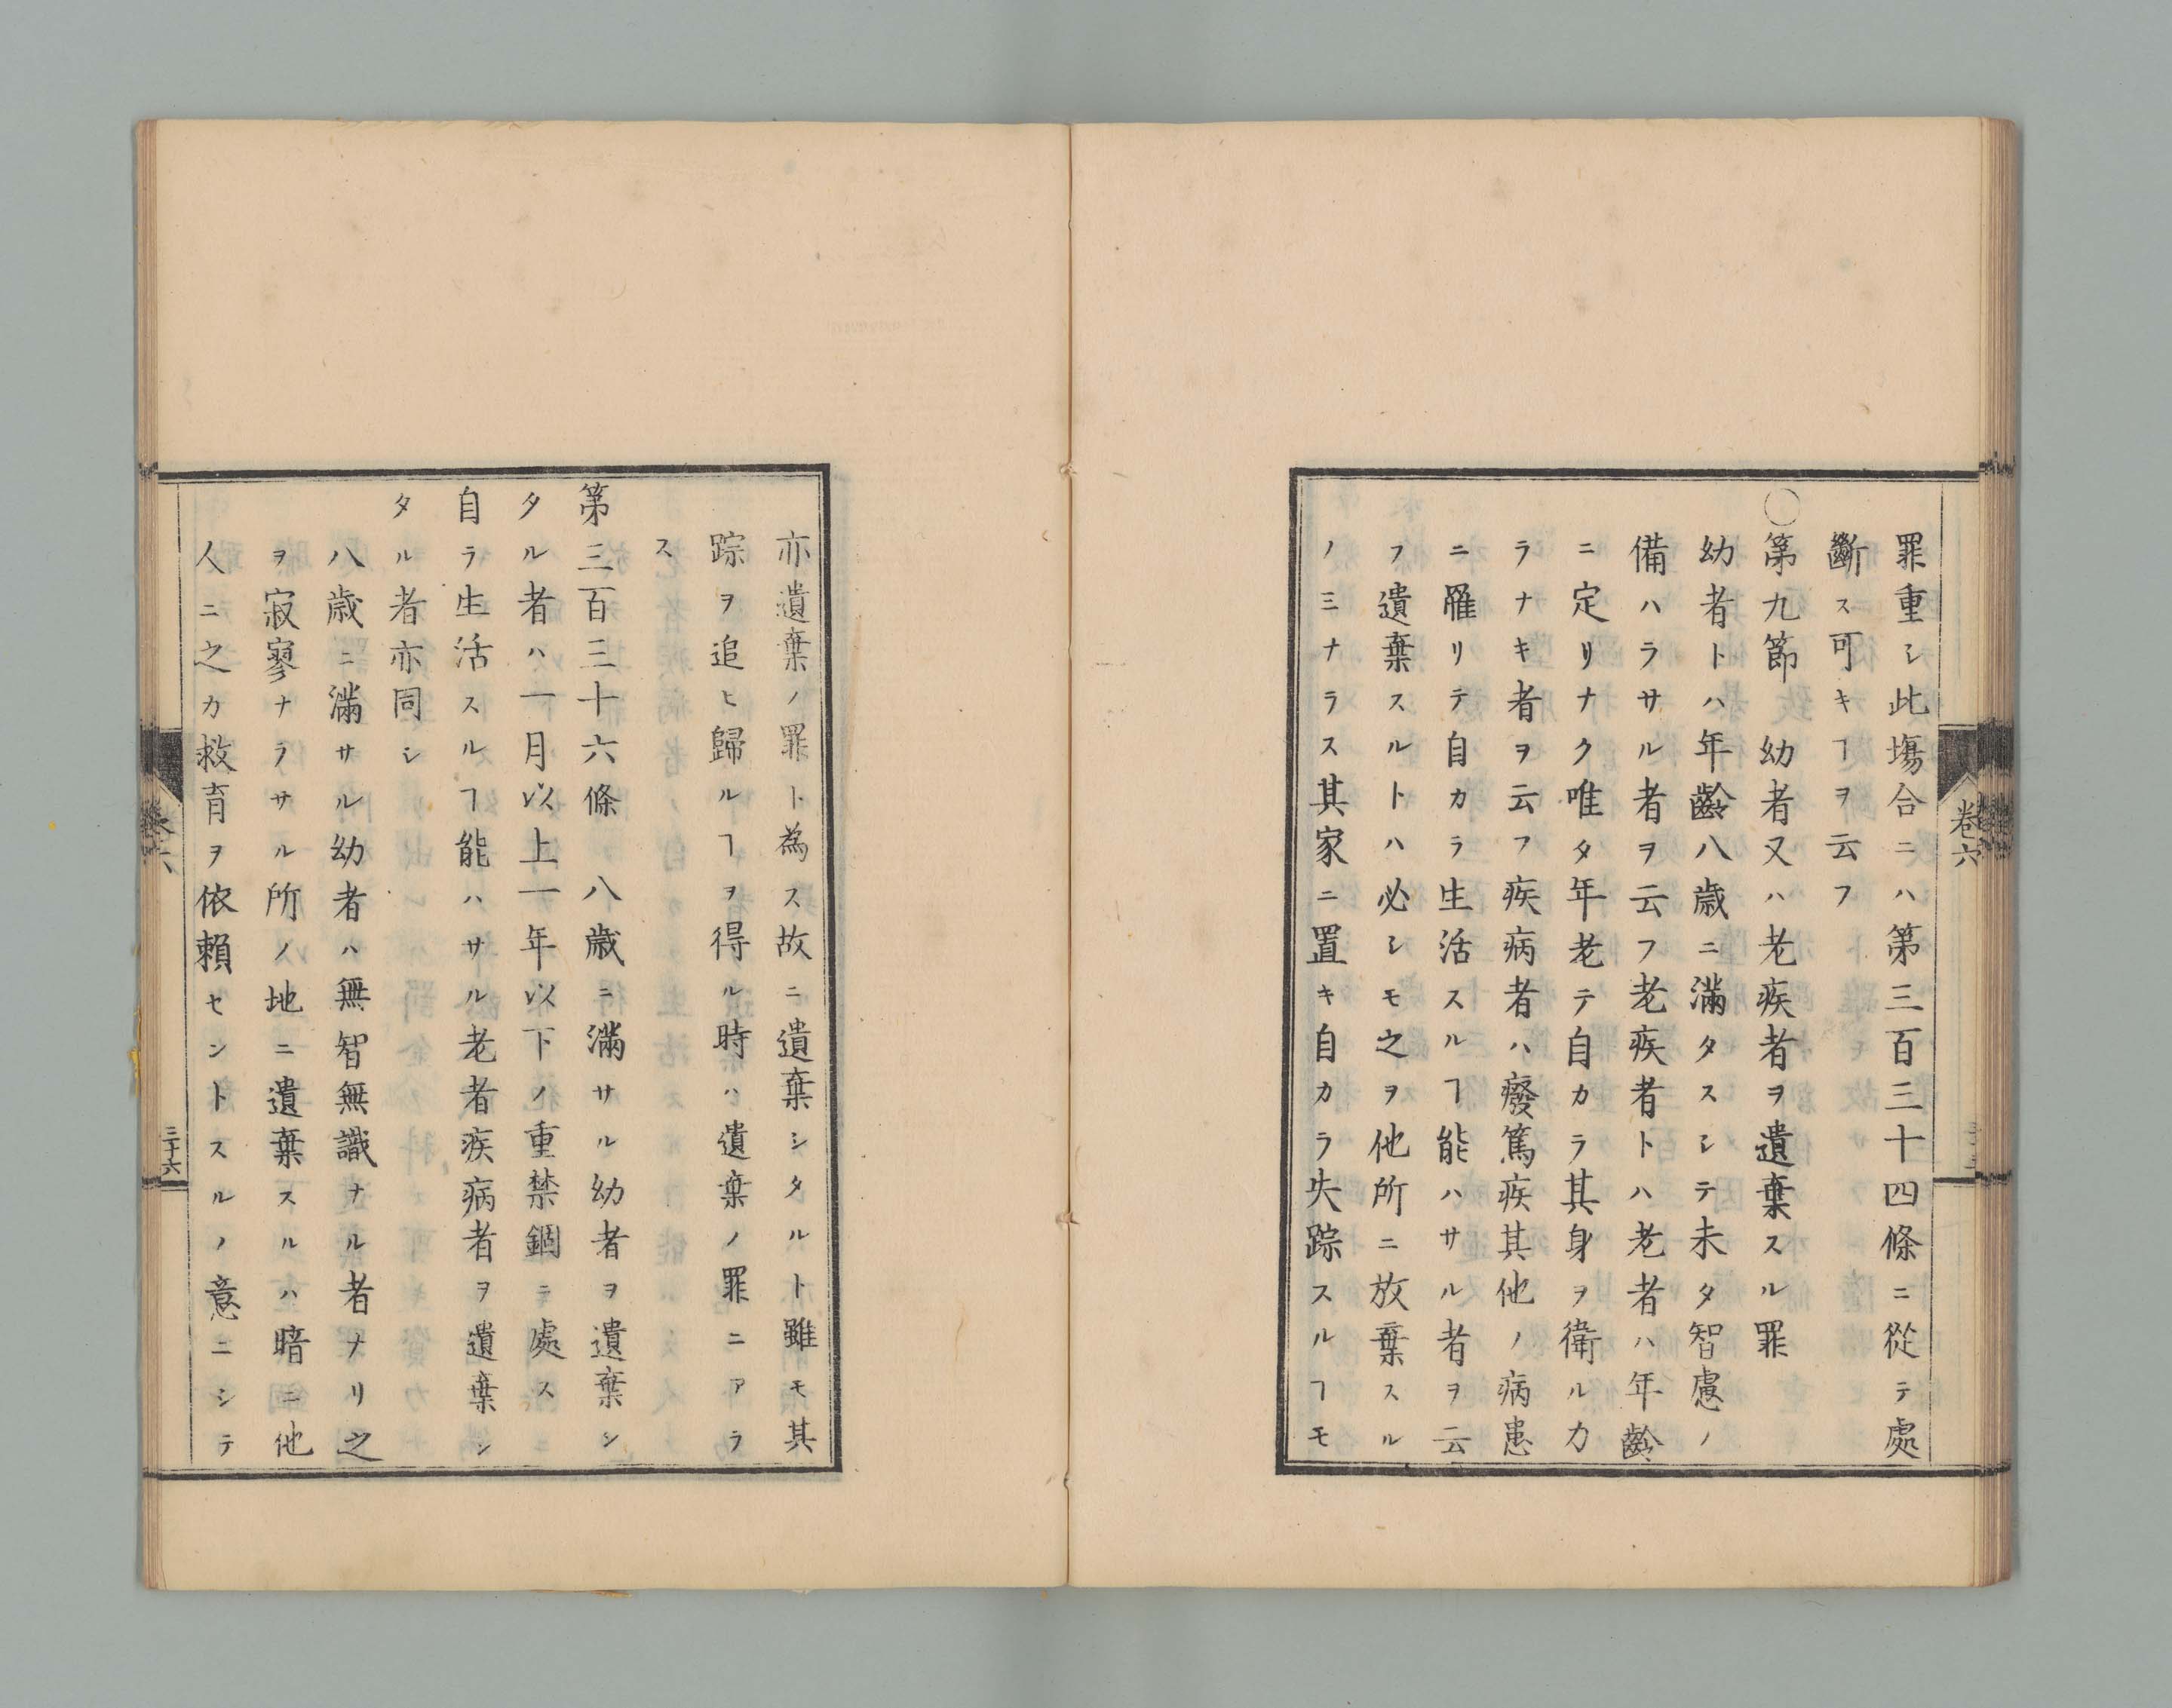 罪重シ此塲合ニハ第三百三十四條ニ從テ處
斷ス可キヿヲ云フ
〇第九節 幼者又ハ老疾者ヲ遺棄スル罪
幼者トハ年齡八歳ニ滿タスシテ未タ智慮ノ
備ハラサル者ヲ云フ老疾者トハ老者ハ年齡
ニ定リナク唯タ年老テ自カラ其身ヲ衛ルカ
ラナキ者ヲ云フ疾病者ハ癈篤疾其他ノ病患
ニ罹リテ自カラ生活スルヿ能ハサル者ヲ云
フ遺棄スルトハ必シモ之ヲ他所ニ放棄スル
ノミナラス其家ニ置キ自カラ失踪スルヿモ
卷六
亦遺棄ノ罪ト為ス故ニ遺棄シタルト雖モ其
踪ヲ追ヒ歸ルヿヲ得ル時ハ遺棄ノ罪ニアラ
ス
第三百三十六條 八歳ニ滿サル幼者ヲ遺棄シ
タル者ハ一月以上一年以下ノ重禁錮ニ處ス
自ラ生活スルヿ能ハサル老者疾病者ヲ遺棄シ
タル者亦同シ
八歳ニ滿サル幼者ハ無智無識ナル者ナリ之
ヲ寂寥ナラサル所ノ地ニ遺棄スルハ暗ニ他
人ニ之カ救育ヲ依賴セントスルノ意ニシテ
卷六
三十六